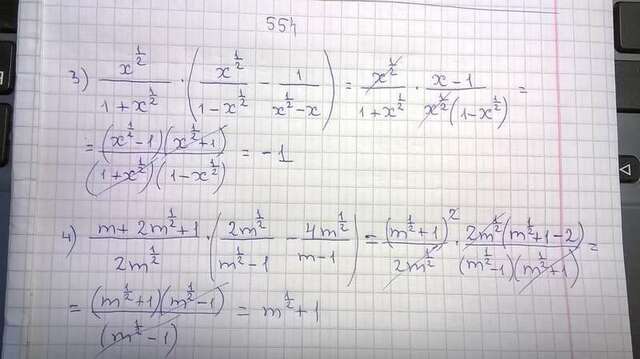 554
3) \frac{x^{\frac{1}{2}}}{1+x^{\frac{1}{2}}} \cdot \left( \frac{x^{\frac{1}{2}}}{1-x^{\frac{1}{2}}} - \frac{1}{x^{\frac{1}{2}}-x} \right) = \frac{x^{\frac{1}{2}}}{1+x^{\frac{1}{2}}} \cdot \frac{x-1}{x^{\frac{1}{2}}(1-x^{\frac{1}{2}})} =
= \frac{(x^{\frac{1}{2}}-1)(x^{\frac{1}{2}}+1)}{(1+x^{\frac{1}{2}})(1-x^{\frac{1}{2}})} = -1
4) \frac{m+2m^{\frac{1}{2}}+1}{2m^{\frac{1}{2}}} \cdot \left( \frac{2m^{\frac{1}{2}}}{m^{\frac{1}{2}}-1} - \frac{4m^{\frac{1}{2}}}{m-1} \right) = \frac{(m^{\frac{1}{2}}+1)^2}{2m^{\frac{1}{2}}} \cdot \frac{2m^{\frac{1}{2}}(m^{\frac{1}{2}}+1-2)}{(m^{\frac{1}{2}}-1)(m^{\frac{1}{2}}+1)} =
= \frac{(m^{\frac{1}{2}}+1)(m^{\frac{1}{2}}-1)}{(m^{\frac{1}{2}}-1)} = m^{\frac{1}{2}}+1